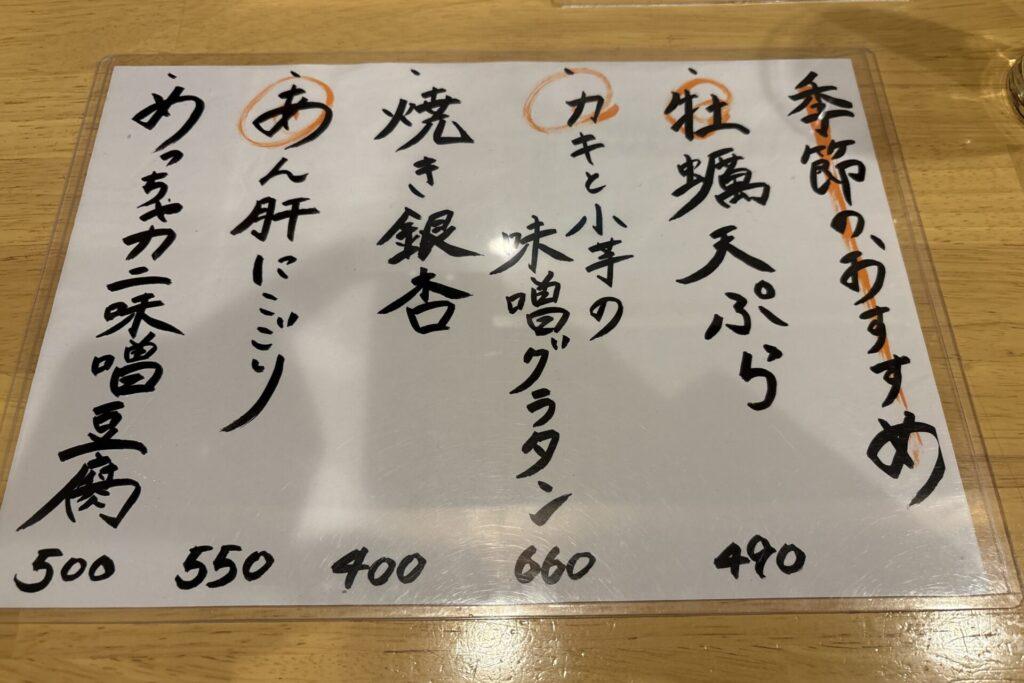 季節の、おすすめ
、牡蠣天ぷら
490
、カキと小芋の
味噌グラタン
660
、焼き銀杏
400
、あん肝にこごり
550
、めっちゃカニ味噌豆腐
500